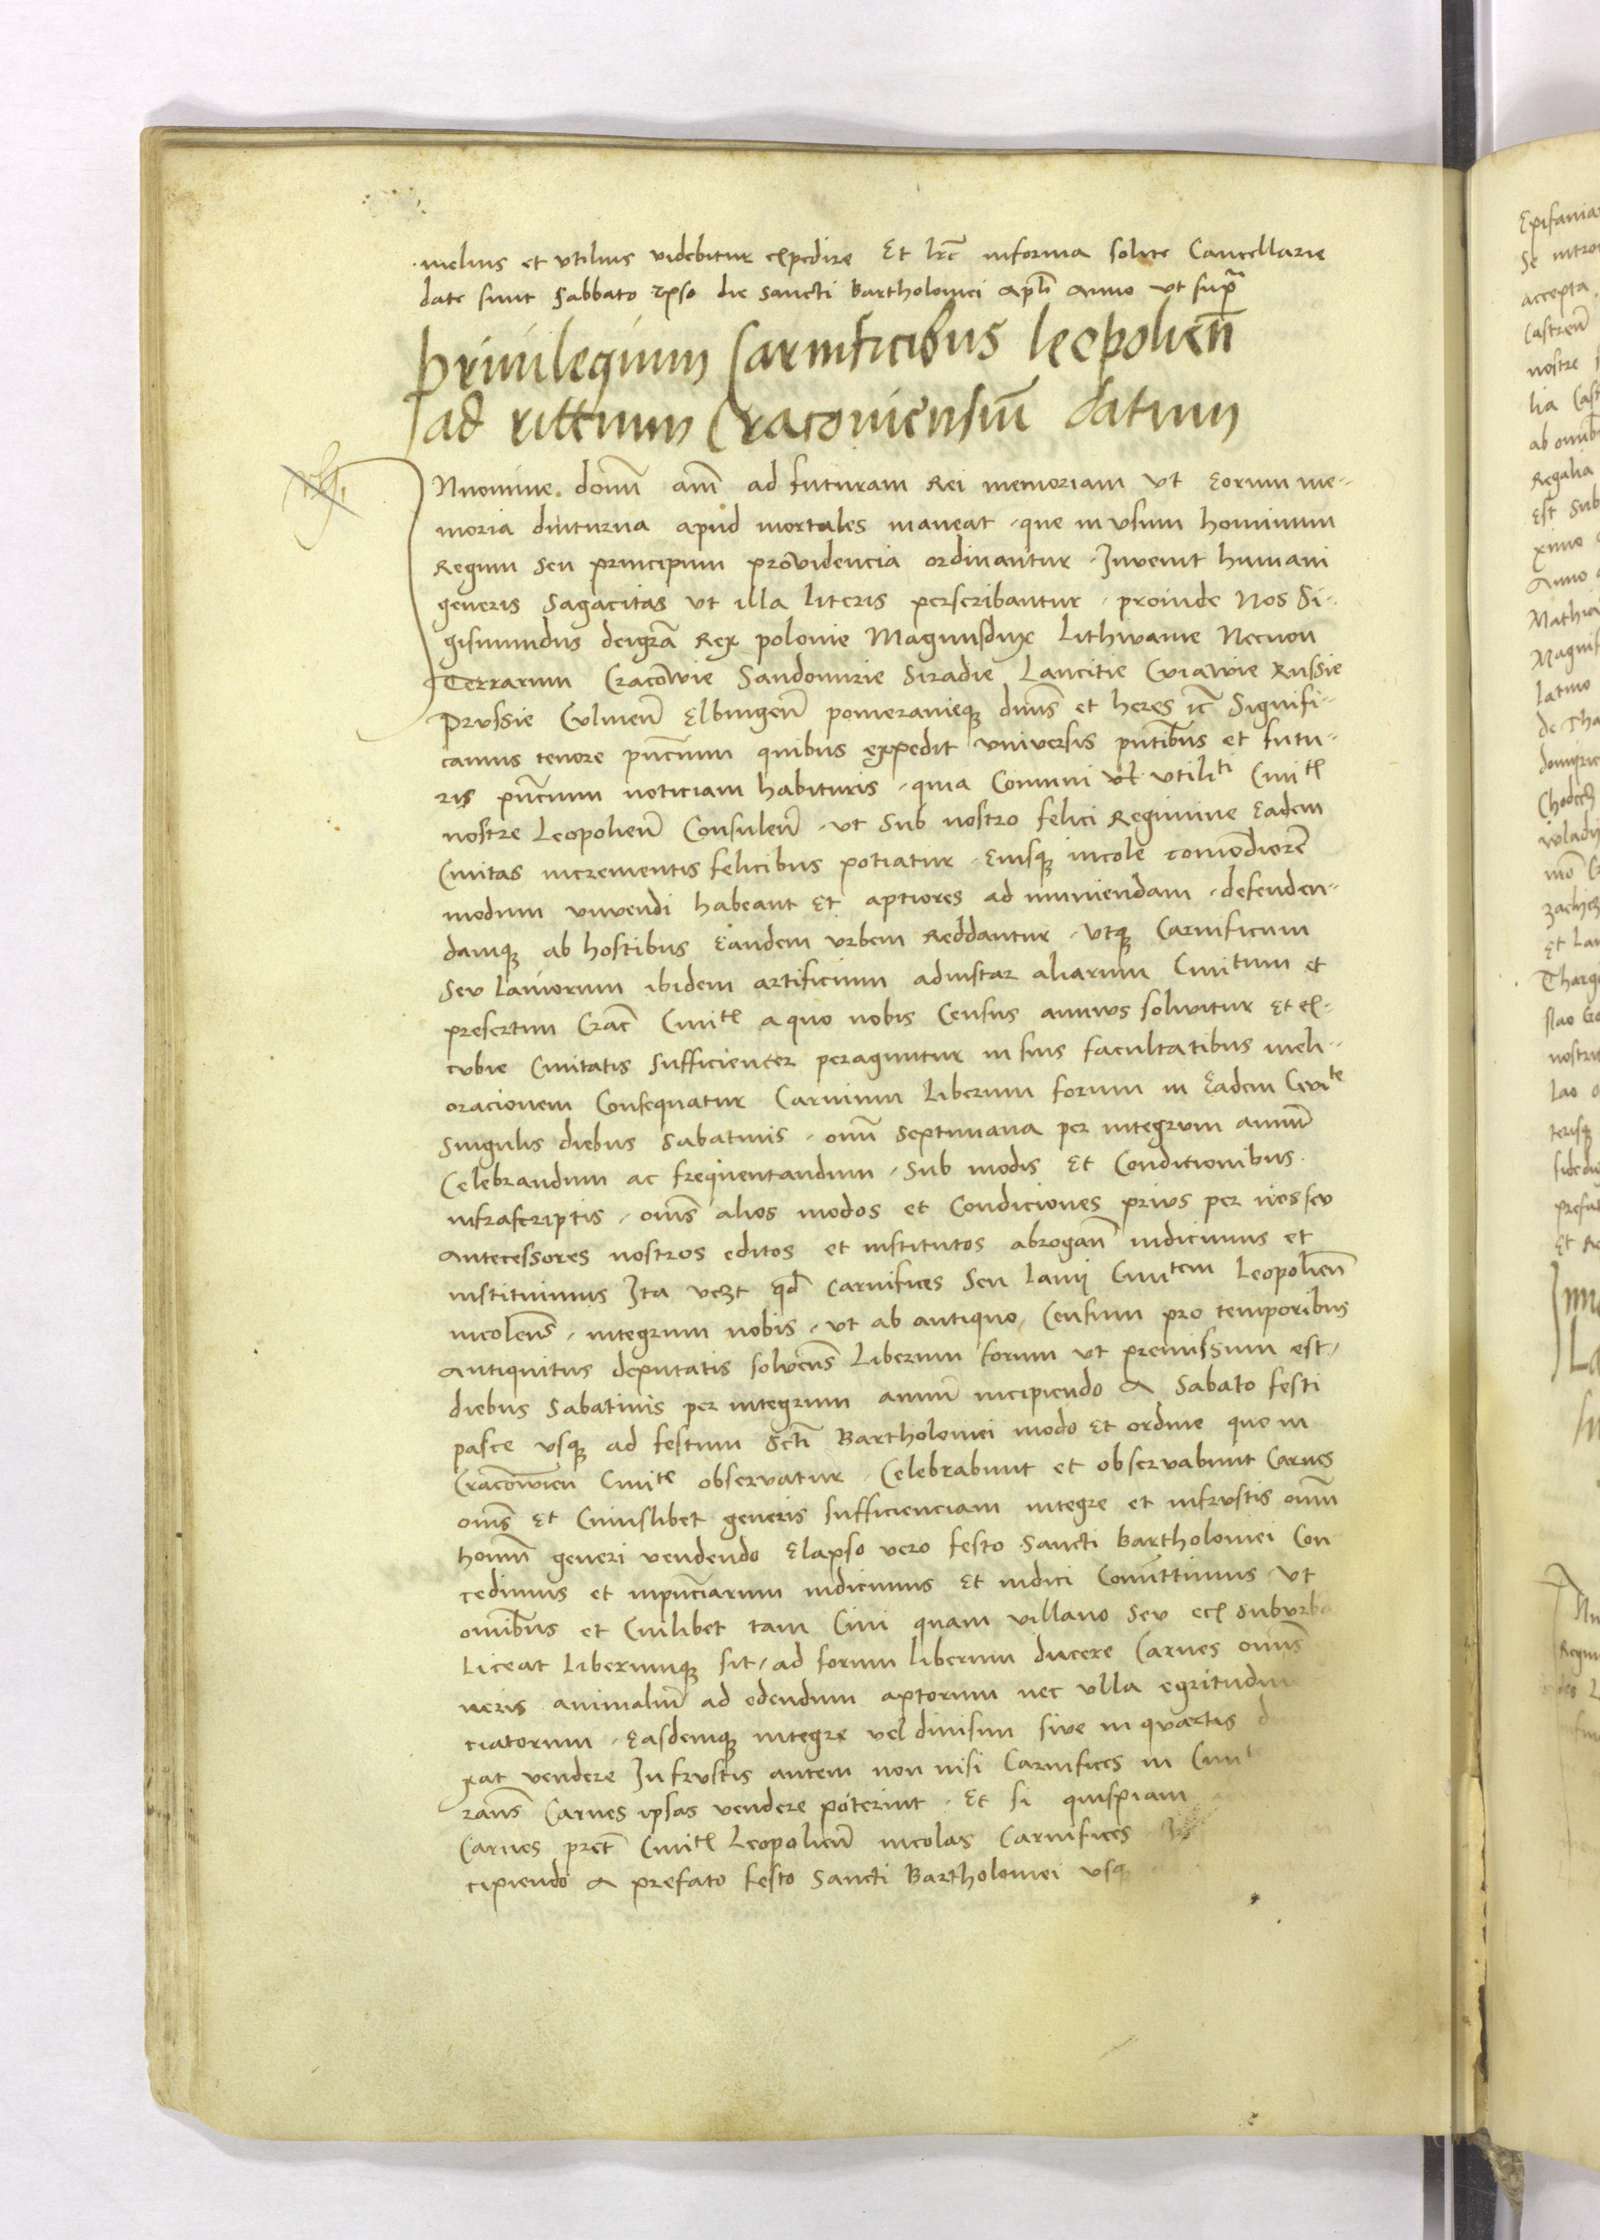 melius et utilius videbitur expedire Et lrē informa solite Cancellarie
date sunt Sabbato ipso die sancti Bartholomei Apli Anno ut supra
Privilegium Carnificibus leopolien̄
ad rittum Cracoviensiū datum
INnomine domī amē ad futuram Rei memoriam ut Eorum me-
moria diuturna apud mortales maneat que in usum hominum
Regum seu principum providencia ordinantur Invenit humani
generis sagacitas ut illa literis perscribantur proinde Nos Si-
gismundus deigrā Rex polonie Magnusdux Lithwanie Necnon
Terrarum Cracowie Sandomirie Siradie Lancitie Cuiawie Russie
Prussie Culmen̄ Elbingen̄ pomeranieqz dn̄s et heres ēt Signifi-
camus tenore pn̄cium quibus expedit universis pn̄tibus et futu-
ris pn̄cium noticiam habituris quia Comuni utiliti Civitꝭ
nostre Leopolien̄ Consulen̄ ut sub nostro felici Regimine Eadem
Civitas incrementis felicibus potiatur Eiusqz incole comodiorē
modum vivendi habeant Et aptiores ad muniendam defenden-
damqz ab hostibus Eandem urbem Reddantur utqz Carnificum
seu laniorum ibidem artificium adinstar aliarum Civitum et
presertim Crac̄ Civitꝭ a quo nobis Census annuus solvitur Et ex-
cubie Civitatis sufficienter peraguntur in suis facultatibus meli-
oracionem Consequatur Carnium Liberum forum in Eadem Civite
singulis diebus Sabatinis omī septimana per integrum annū
Celebrandum ac frequentandum sub modis Et Conditionibus
infrascriptis omīs alios modos et Condiciones prius per nos seu
antecessores nostros editos et institutos abrogan̄ indicimus et
instituimus Ita vczt qd Carnifices seu lanij Civitem Leopolien̄
incolen̄s integrum nobis ut ab antiquo Censum pro temporibus
antiquitus deputatis solven̄s Liberum forum ut premissum est
diebus Sabatinis per integrum annū incipiendo A Sabato festi
pasce usqz ad festum Scti Bartholomei modo Et ordine quo in
Cracowien̄ Civite observatur Celebrabunt et observabunt Carnes
omīs Et Cuiuslibet generis sufficienciam integre et infrustis omī
homī generi vendendo Elapso vero festo Sancti Bartholomei Con
cedimus et inpn̄ciarum indicimus Et indici Comittimus ut
omībus et Cuilibet tam Civi quam villano seu ecꝭ suburba
Liceat Liberumqz sit ad forum liberum ducere Carnes omīs
neris animaliū ad edendum aptorum nec ulla egritudine
ciatorum Easdemqz integre vel divisim sive in quartis
xat vendere In frustis autem non nisi Carnifices in Civit
ran̄s Carnes ipsas vendere poterint Et si quispiam
Carnes pret Civitꝭ Leopolien̄ incolas Carnifices
cipiendo A prefato festo Sancti Bartholomei usqz